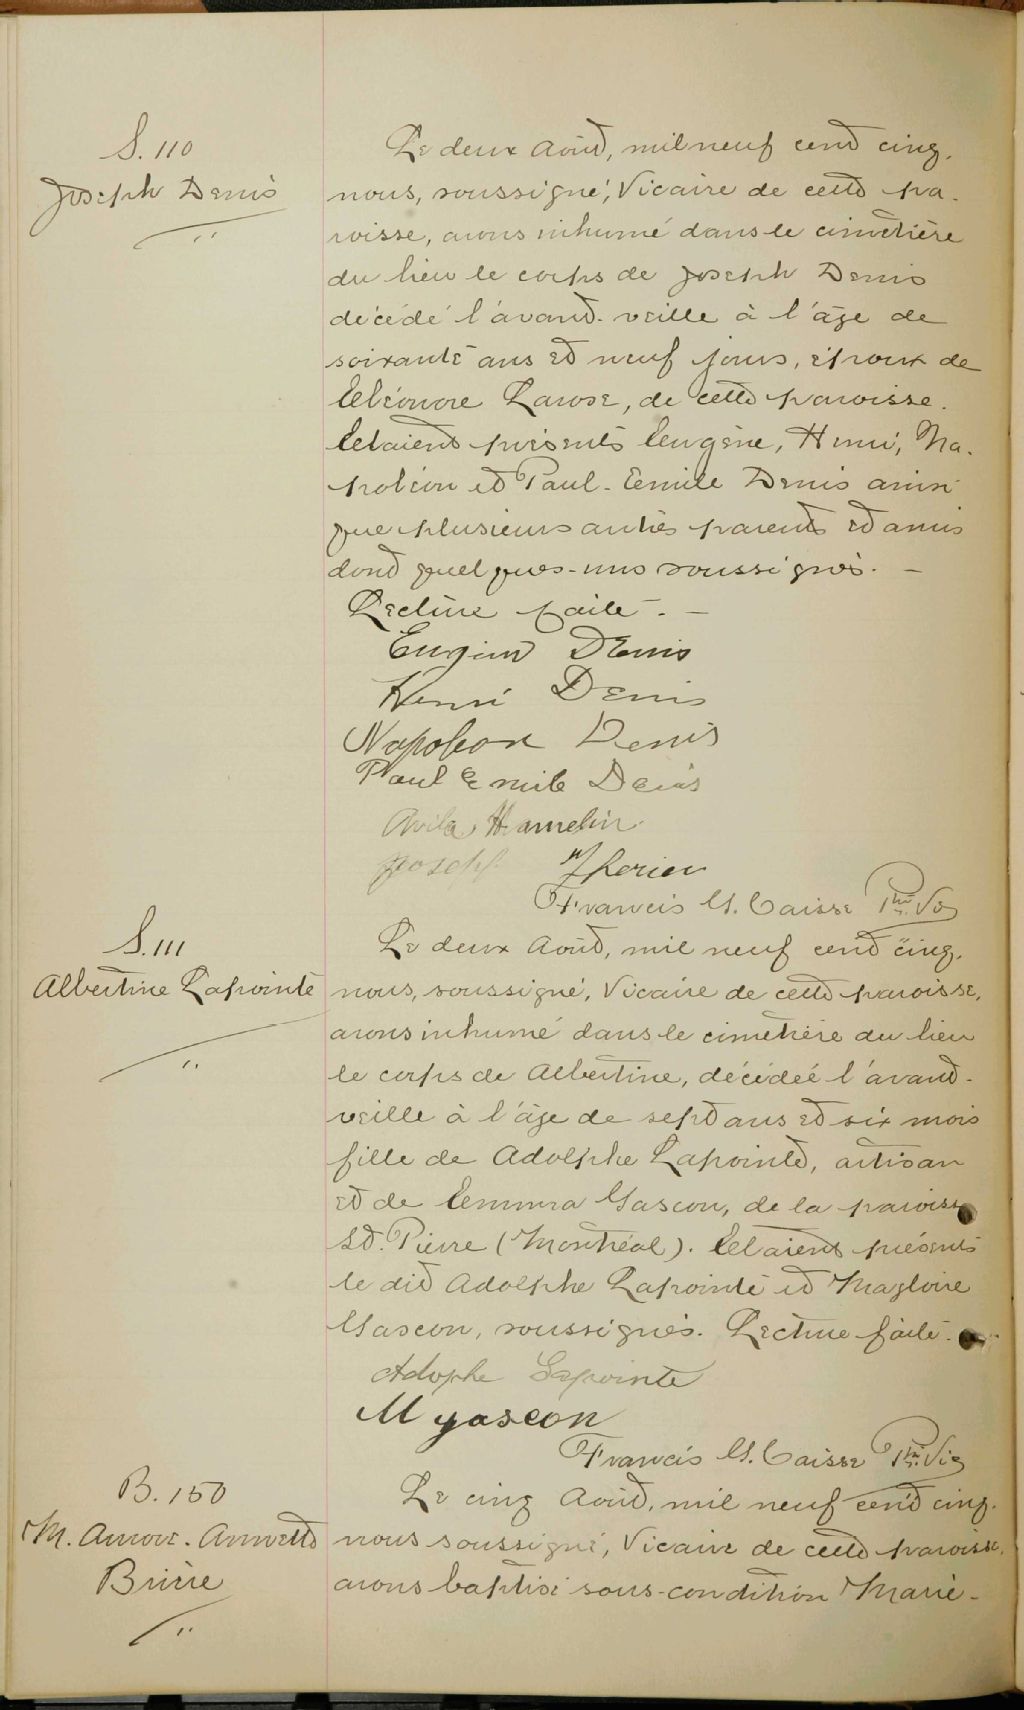 S. 110
Joseph Denis
Le deux Août, mil neuf cent cinq,
nous, soussigné, Vicaire de cette pa-
roisse, avons inhumé dans le cimetière
du lieu le corps de Joseph Denis
décédé l'avant-veille à l'âge de
soixante ans et neuf jours, époux de
Eléonore Larose, de cette paroisse.
Etaient présents Eugène, Henri, Na-
poléon et Paul-Emile Denis ainsi
que plusieurs autres parents et amis
dont quelques-uns soussignés. —
Lecture faite. —
Eugène Denis
Henri Denis
Napoleon Denis
Paul Emile Denis
Avila Hamelin
Joseph Therien
Francis M. Caisse Ptre. Vic
S. 111
Albertine Lapointe
Le deux Août, mil neuf cent cinq,
nous, soussigné, Vicaire de cette paroisse,
avons inhumé dans le cimetière du lieu
le corps de Albertine, décédée l'avant-
veille à l'âge de sept ans et six mois
fille de Adolphe Lapointe, artisan
et de Emma Gascon, de la paroisse
St. Pierre (Montréal). Etaient présents
le dit Adolphe Lapointe et Magloire
Gascon, soussignés. Lecture faite.
Adophe Lapointe
M gascon
Francis M. Caisse Ptre. Vic
B. 150
M. Aurore-Annette
Brière
Le cinq Août, mil neuf cent cinq,
nous soussigné, Vicaire de cette paroisse,
avons baptisé sous-condition Marie-